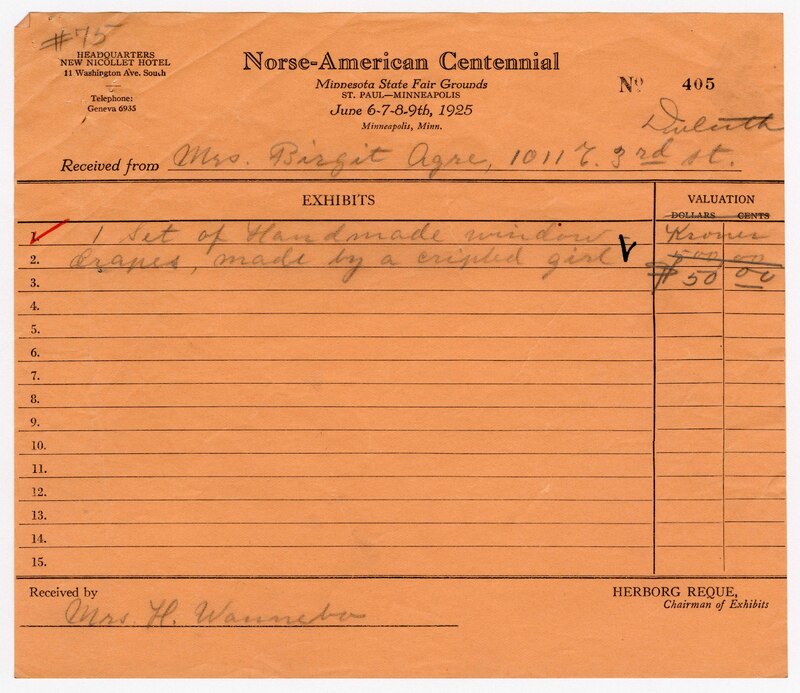 #75
HEADQUARTERS
NEW NICOLLET HOTEL
11 Washington Ave. South
Telephone:
Geneva 6935
Norse-American Centennial
Minnesota State Fair Grounds
ST. PAUL—MINNEAPOLIS
June 6-7-8-9th, 1925
Minneapolis, Minn.
Nº 405
Duluth
Received from Mrs. Birgit Agre, 1011 E. 3rd st.
EXHIBITS
VALUATION
DOLLARS CENTS
1. 1 Set of Handmade window Kroner
2. Drapes, made by a cripled girl V 500 00
3. $50 00
4.
5.
6.
7.
8.
9.
10.
11.
12.
13.
14.
15.
Received by
Mrs. H. Wannebo
HERBORG REQUE,
Chairman of Exhibits